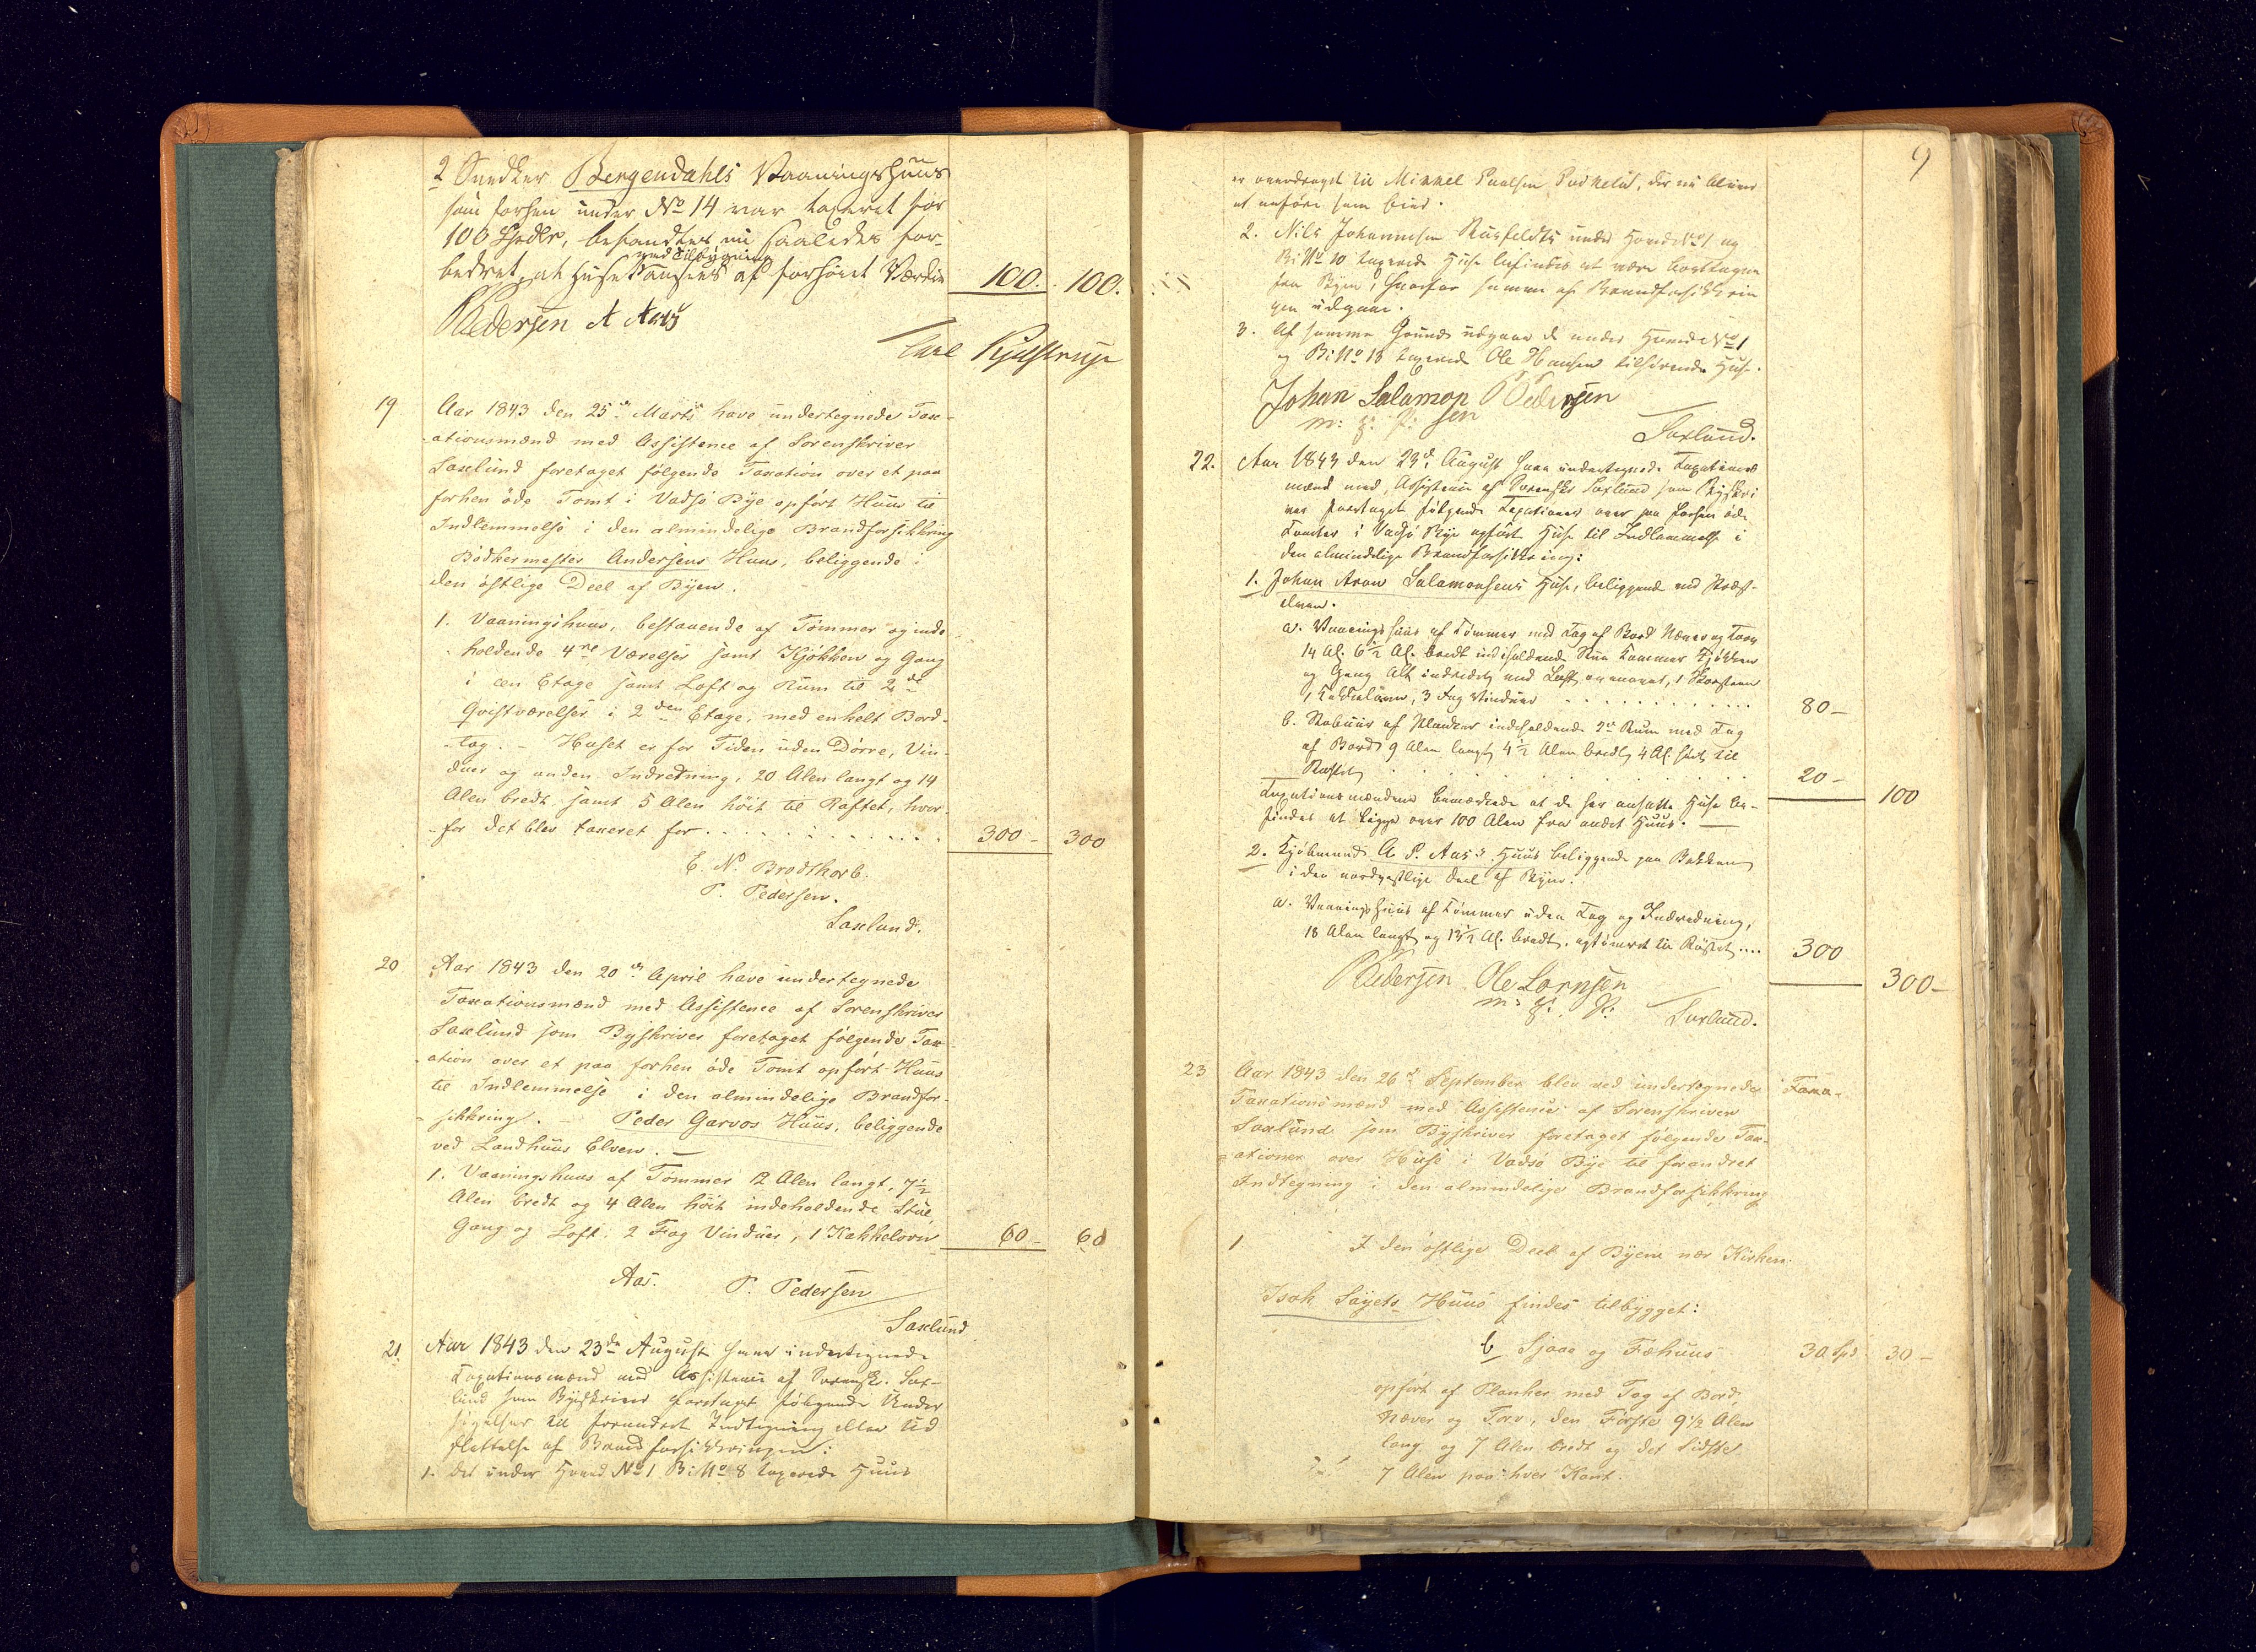 2 Snedker Bergendahls Vaaningshuus
som forhen under No 14 var taxeret for
100 Spdlr, befandtes nu saaledes for-
ved Tilbygning
bedret, at Huset ansees af forhöiet Værdie 100. 100.
P Pedersen A Aas
Carl Kjelstrup
19 Aar 1843 den 25de Marts have undertegnede Tax-
-ationsmænd med Assistence af Sorenskriver
Saxlund foretaget følgende Taxation over et paa
forhen öde Tomt i Vadsö Bye opfört Huus til
Indlemmelse i den almindelige Brandforsikkring
Bödkermester Andersens Huus, beliggende i
den östlige Deel af Byen.
1. Vaaningshuus, bestaaende af Tömmer og inde-
holdende 4re Værelser samt Kjökken og Gang
i een Etage samt Loft og Rum til 2de
Qvistværelser i 2den Etage, med enkelt Bord-
-tag. - Huset er for Tiden uden Dörre, Vin-
duer og anden Indretning, 20 Alen langt og 14
Alen bredt, samt 5 Alen höit til Raftet, hvor-
-for det blev taxeret for . . . . . . . . . . . 300 - 300
E. N. Brodtkorb.
P. Pedersen.
Saxlund.
20 Aar 1843 den 20de April have undertegnede
Taxationsmænd med Assistence af Sorenskriver
Saxlund som Byskriver foretaget følgende Tax-
-ation over et paa forhen öde Tomt opfört Huus
til Indlemmelse i den almindelige Brandfor-
-sikkring. - Peder Garvos Huus, beliggende
ved Landhuus Elven. -
1. Vaaningshuus af Tömmer 12 Alen langt, 7½
Alen bredt og 4 Alen höit indeholdende Stue,
Gang og Loft, 2 Fag Vinduer, 1 Kakkelovn 60 - 60
Aas. P. Pedersen
Saxlund
21. Aar 1843 den 23de August have undertegnede
Taxationsmænd med Assistence af Sorenskr. Sax-
lund som Byeskriver foretaget følgende Under
søgelser til forandret Indtegning eller Ud
slettelse af Brandforsikkringen:
1. det under Hoved No 1 Bi No 8 taxerede Huus
9
er overdraget til Mikkel Paulsen, der nu bliver
at anföre som Eier.
2. Nils Johannesen under Hoved No 1 og
Bi No 10 taxerede Huse befindes at være borttagne
fra Byen, hvorfor samme af Brandforsikkrin
gen udgaar.
3. Af samme Grund udgaar de under Hoved No 1
og Bi No 18 taxerede Ole Hansen tilhörende Huse.
Johan Salamonsen P Pedersen
m: f: P:
Saxlund.
22. Aar 1843 den 23de August have undertegnede Taxations
mænd med Assistence af Sorenskr Saxlund som Byskri
ver foretaget følgende Taxationer over paa forhen öde
Tomter i Vadsö Bye opförte Huse til Indlemmelse i
den almindelige Brandforsikkring:
1. Johan Aron Salamonsens Huse, beliggende ved Præst-
elven.
a. Vaaningshuus af Tömmer med Tag af Bord Næver og Torv
14 Al. 6½ Al. bredt indeholdende Stue Kammer Kjökken
og Gang Alt indredet med Loft ovenover, 1 Skorsteen
1 Kakkelovn, 3 Fag Vinduer . . . . . . . . . . . . 80 -
b. Stabuur af Planker indeholdende 2de Rum med Tag
af Bord 9 Alen langt 4½ Alen bredt 4 Al. höit til
Raftet . . . . . . . . . . . . 20 - 100
Taxationsmændene bemærkede at de her ansatte Huse be-
findes at ligge over 100 Alen fra andet Huus. -
2. Kjöbmand A P. Aas's Huus beliggende paa Bakken
i den nordvestlige Deel af Byen.
a. Vaaningshuus af Tömmer uden Tag og Indredning,
18 Alen langt og 13½ Al. bredt, optömret til Röstet . . . . 300 300 -
P Pedersen Ole Lornsen
m: f: P:
Saxlund.
23 Aar 1843 den 26de September blev ved undertegnede Taxa-
Taxationsmænd med Assistence af Sorenskriver
Saxlund som Byskriver foretaget følgende Tax-
-ationer over Huse i Vadsö Bye til forandret
Indtegning i den almindelige Brandforsikkring
1. I den östlige Deel af Byen nær Kirken.
Isak Sayets Huus findes tilbygget:
b Sjaae og Fæhuus 30 Spd 30 -
opfört af Planker med Tag af Bord,
Næver og Torv, den Förste 9½ Alen
lang og 7 Alen bredt og det Sidste
7 Alen paa hver Kant.